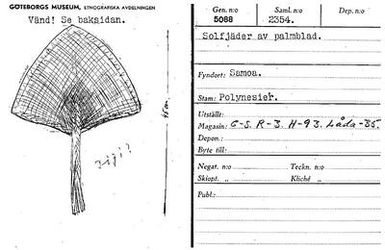 GÖTEBORGS MUSEUM, ETNOGRAFISKA AVDELNINGEN
Vänd! Se baksidan.
Gen. n:o
5088
Saml. n:o
2354.
Dep. n:o
Solfjäder av palmblad.
Fyndort: Samoa.
Stam: Polynesier.
Utställt:
Magasin: C-S. R-3. H-93. Låda-85.
Depon.:
Byte till:
Negat. n:o
Teckn. n:o
Skiopt. „
Kliché „
Publ.: